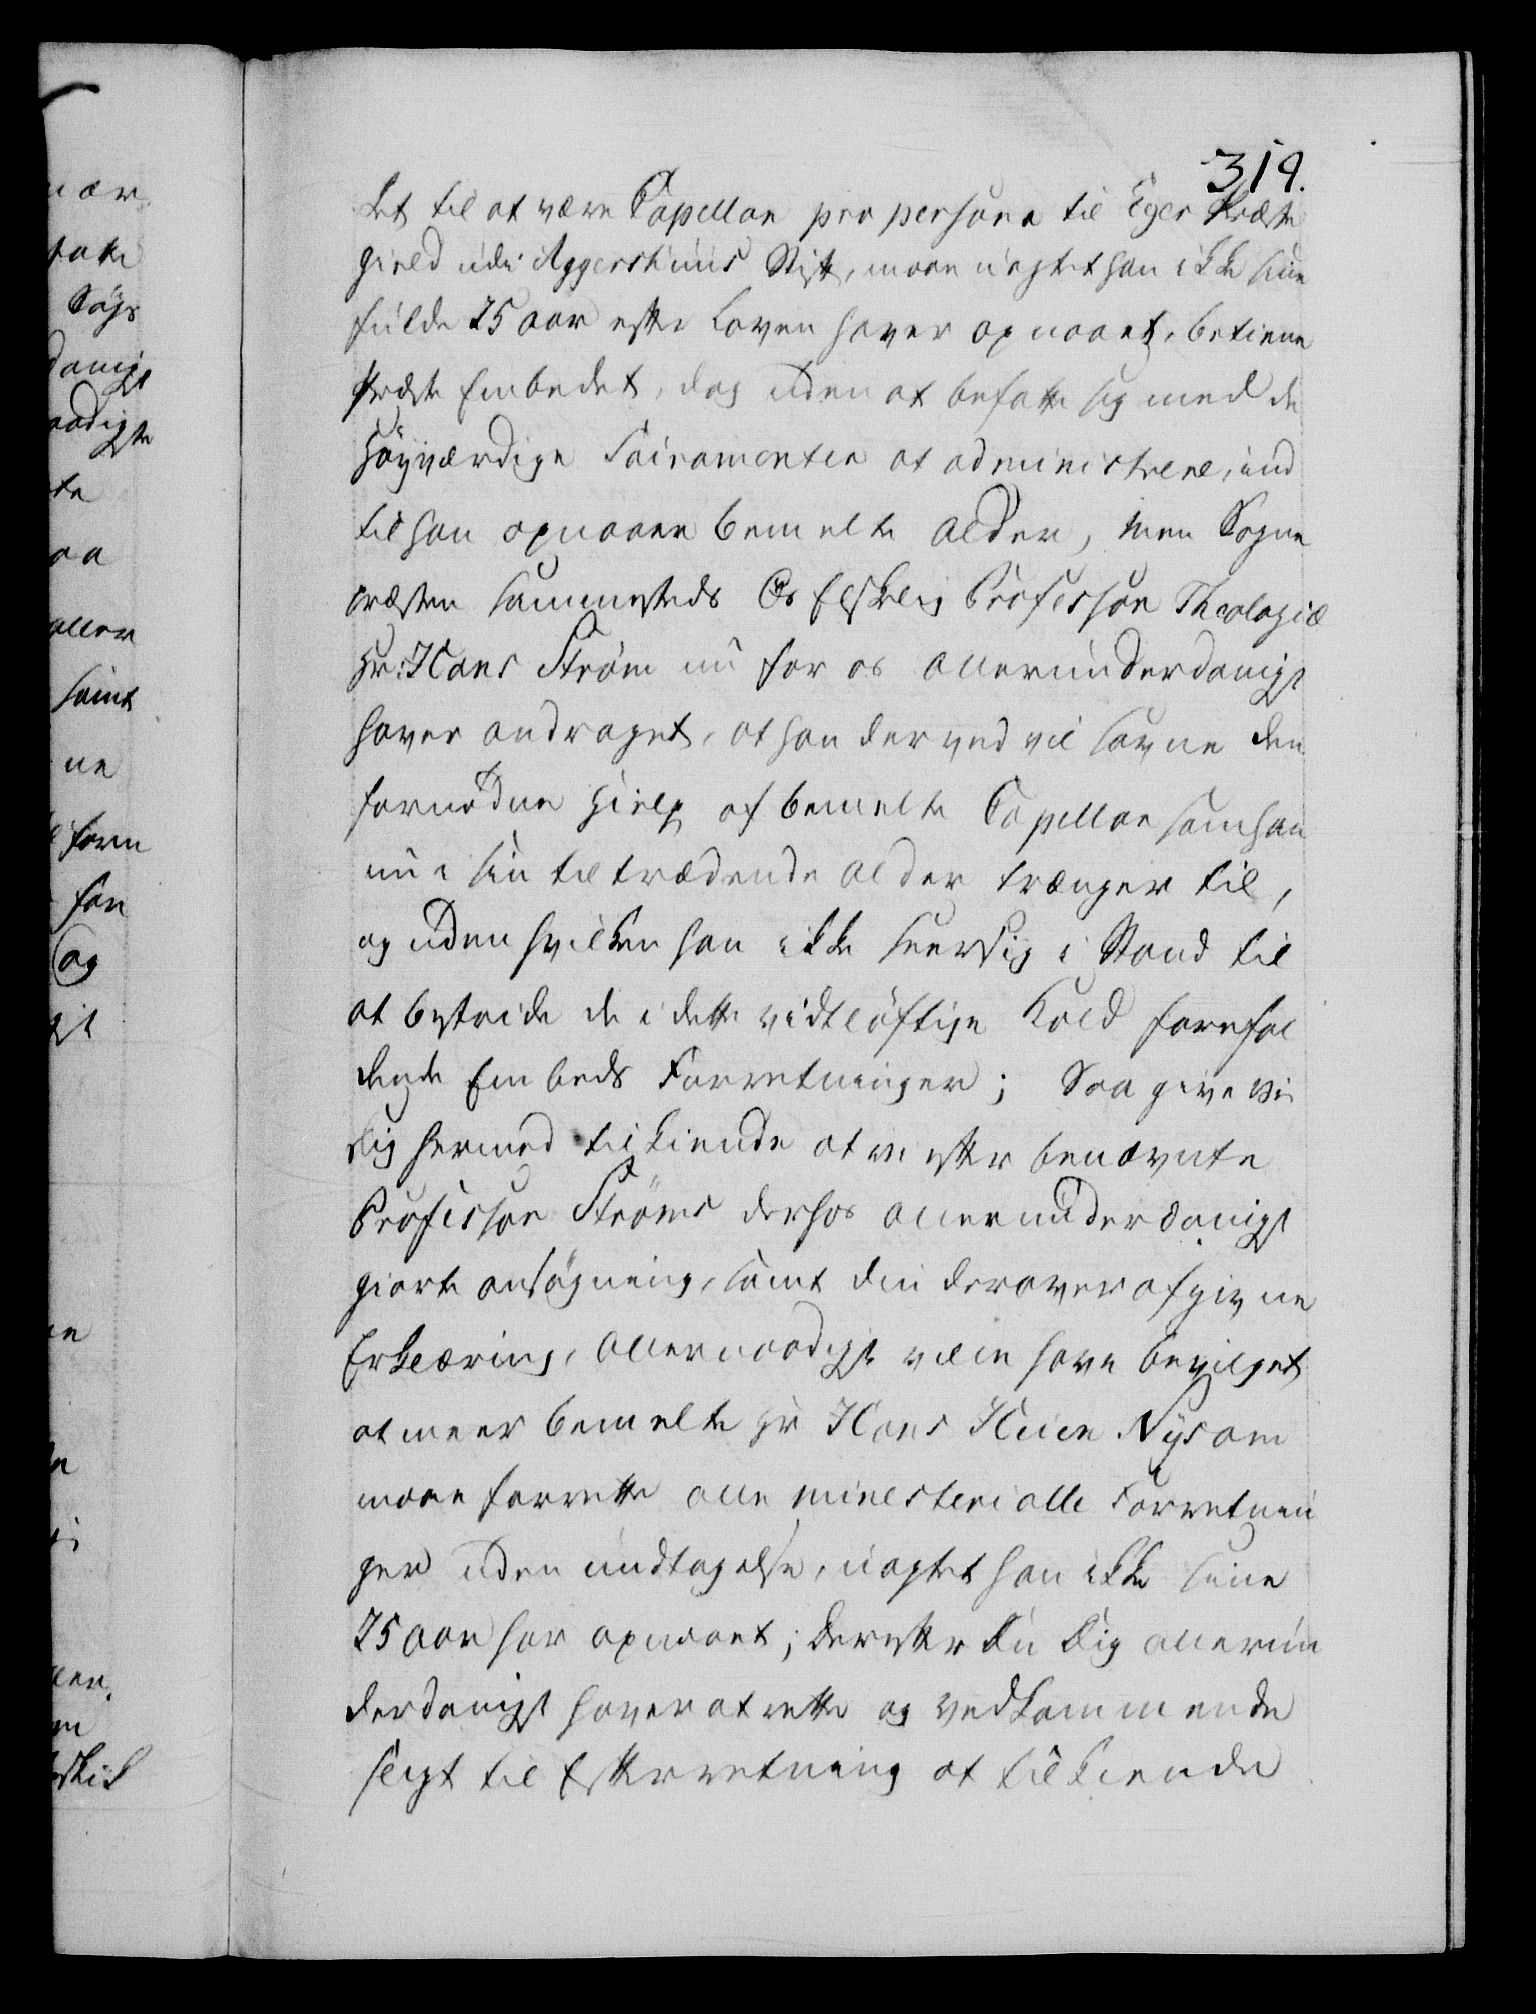 319.
det til at være Capellan pro persona til Eger Præste
gield udi Aggershuus Stift, maae uagtet han ikke sine
fulde 25 aar efter Loven haver opnaaet, betiene
Præste Embedet, dog uden at befatte sig med de
Høyværdige Sacramenter at administrere, ind
til han opnaaer bemelte Alder, men Sogne
præsten sammesteds Os Elskelig Professor Theologiæ
Hr: Hans Strøm nu for os allerunderdanigst
haver andraget, at han derved vil savne den
fornødne Hielp af bemelte Capellan som han
nu i sin tiltrædende Alder trænger til,
og uden hvilken han ikke seer sig i Stand til
at bestride de i dette vidtløftige Kald forefal
dende Embeds Forretninger; Saa give Vi
dig hermed tilkiende at vi efter benævnte
Professor Strøms derhos allerunderdanigst
giorte ansøgning, samt din derover afgivne
Erklæring, allernaadigst ville have bevilget
at meer bemelte Hr Hans Heien Nysom
maae forrette alle ministerialle Forretnin
ger uden undtagelse, uagtet han ikke sine
25 aar har opnaaet; derefter Du dig allerun
derdanigst haver at rette og vedkommende
sligt til Efterretning at tilkiende